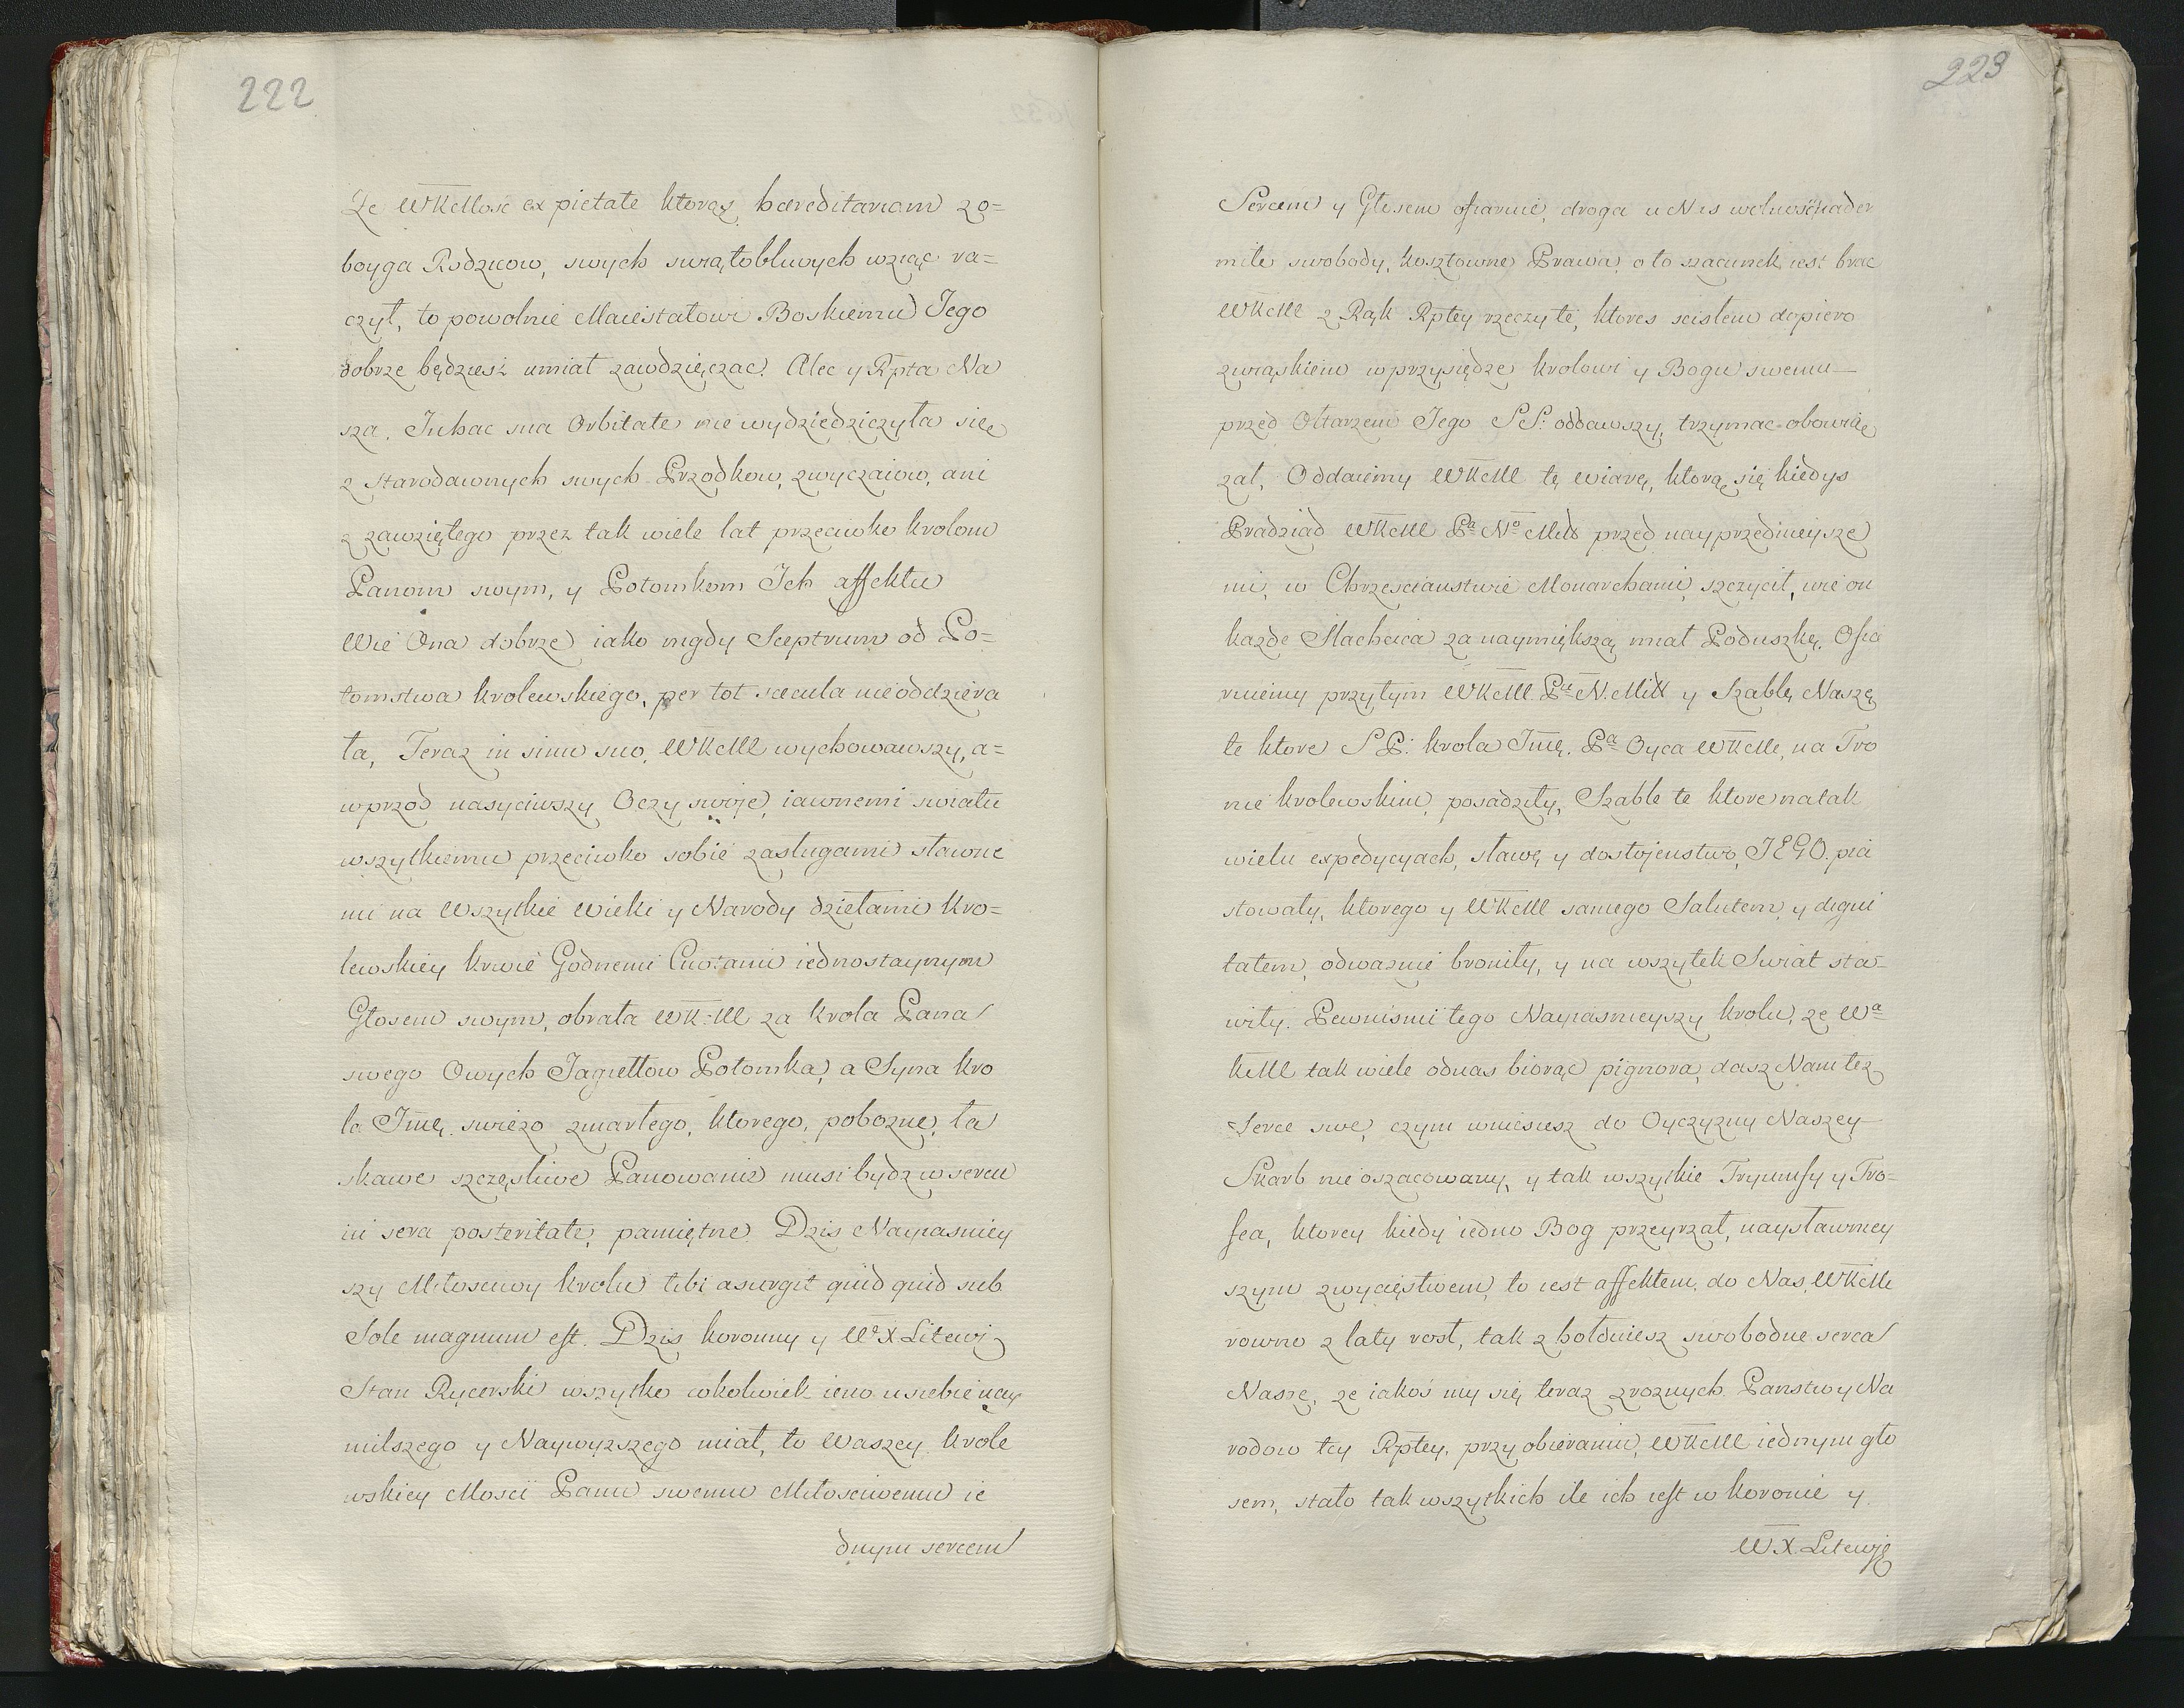 222
Ze WKMosc ex pietate ktorąs haereditariam zo=
boyga Rodzicow, swych swiątobliwych wziąć ra=
czył, to powolnie Maiestatowi Boskiemu Jego
dobrze będziesz umiał zawdzięczac. Alec y Rpta Na
sza. In hac sua Orbitate nie wydziedziczyła się
z starodawnych swych Przodkow, zwyczaiow, ani
z zawziętego przez tak wiele lat przeciwko krolom
Panom swym, y Potomkom Ich affektu
Wie Ona dobrze iako nigdy Sceptrum od Po=
tomstwa krolewskiego, per tot saecula nieoddziera
ła, Teraz in sinu suo, WKMM wychowawszy, a=
wprzod nasyciwszy Oczy swoje, iawnemi swiatu
wszytkiemu przeciwko sobie zasługami sławne
mi na Wszytkie Wieki y Narody dziełami kro=
lewskiey krwie Godnemi Cnotami iednostaynym
Głosem swym, obrała WKMM za krola Pana
swego Owych Jagiełłow Potomka, a Syna kro
la Jmę. swiezo zmarłego, ktorego, pobozne, ła
skawe szczęsliwe Panowanie musi bydz w sercu
in sera posteritate, pamiętne. Dzis Nayiasniey
szy Miłosciwy krolu tibi asurgit quid quid sub
Sole magnum est. Dzis koronny y Wo X. Litewj
Stan Rycerski wszytko cokolwiek ieno u siebie nay
milszego y Naywyzszego miał, to Waszey krole
wskiey Mosci Panu swemu Miłosciwemu ie
dnym sercem
223
Sercem y Głosem ofiaruie, droga u Nas wolność nader
miłe swobody, kosztowne Prawa, o to szacunek iest brac
WKMM z Rąk Rptey rzeczy te, ktores scisłem dopiero
związkiem w przysiędze krolowi y Bogu swemu
przed Ołtarzem Jego SS: oddawszy, trzymac obowią
zał. Oddaiemy WKMM tę wiarę, ktorą się kiedys
Pradziad WKMM Pa No Mił przed nayprzednieysze
mi, w Chrzescianstwie Monarchami, szczycił, wie on
kazde Slachcica za naymiększą miał Poduszkę. Ofia
ruiemy przytym WKMM. Pa N. Mitt y Szablę Naszę
te ktore S P: krola Jmę. Pa Oyca WKMM, na Tro
nie krolewskim, posadziły, Szable te ktore na tak
wielu expedycyach, sławę y dostojenstwo, JEGO. pia
stowały, ktorego y WKMM samego Salutem, y digni
tatem, odwaznie broniły, y na wszytek Swiat sta=
wiły. Pewnismi tego Nayiasnieyszy krolu, ze Wa
KMM tak wiele od nas biorąc pignora, dasz Nam tez
Serce swe, czym wniesiesz do Oyczyzny Naszey
Skarb nie oszacowany, y tak wszytkie Tryumfy y Tro=
fea, ktorey kiedy iedno Bog przeyrzał, naysławniey
szym zwycięstwem, to iest affektem, do Nas, WKMM
rowno z laty rost, tak z hołduiesz swobodne serca
Naszę, ze iakoś my się teraz z roznych Panstw y Na
rodow tey Rptey, przy obieraniu, WKMM iednym gło
sem, stało tak wszytkich ile ich iest w koronie y
W X. Litewję